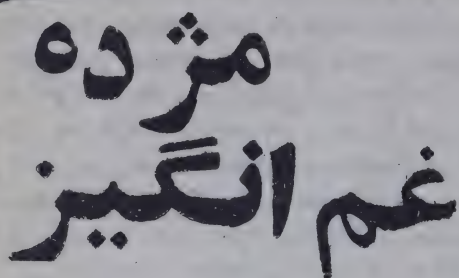 مژده
غم انگیز